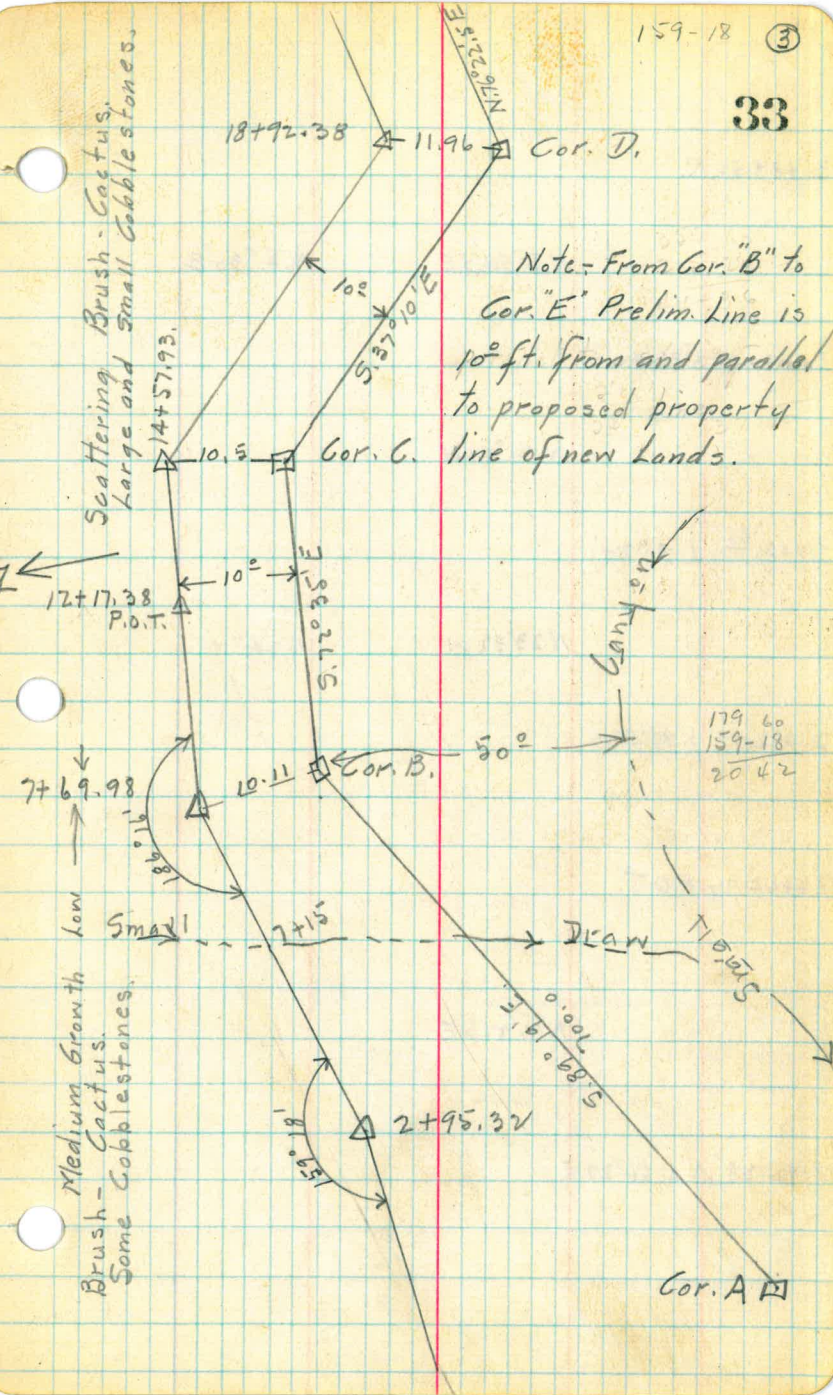 159-18 ③
33
N.76°22.5'E
18+92.38
11.96
Cor. D.
Scattering Brush - Cactus.
Large and Small Cobblestones.
Note- From Cor. "B" to
Cor. "E" Prelim. Line is
10º ft. from and parallel
to proposed property
line of new Lands.
10º
S.37°10'E
14+57.93.
10.5
Cor. C.
10º
12+17.38
P.O.T.
S.72°35'E
Canyon
179 60
159-18
20 42
50º
10.11
Cor. B.
7+69.98
186°16'
Small
7+15
Draw
Small
Medium Growth Low
Brush - Cactus.
Some Cobblestones.
S.89°19'E.
700.0
2+95.32
159°18'
Cor. A